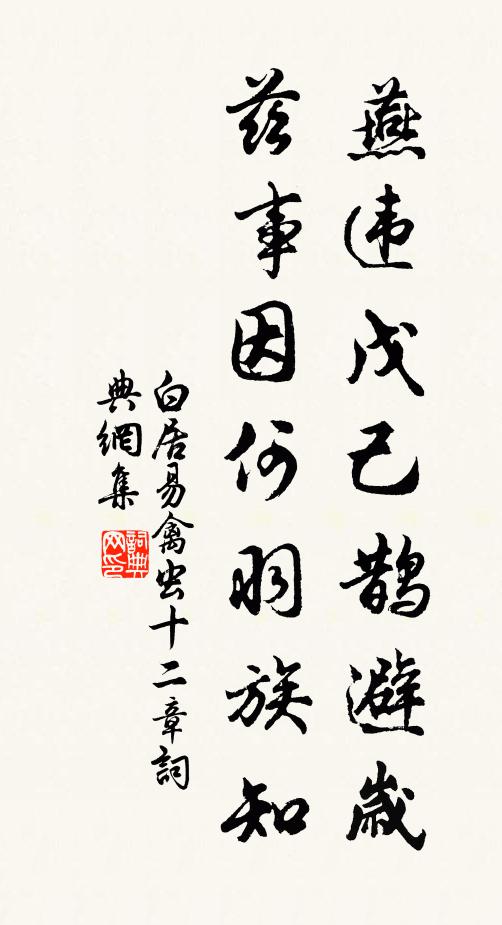 燕违戊己鹊避歲
兹事因何羽族知
白居易禽虫十二章詞
典網集
詞典网印